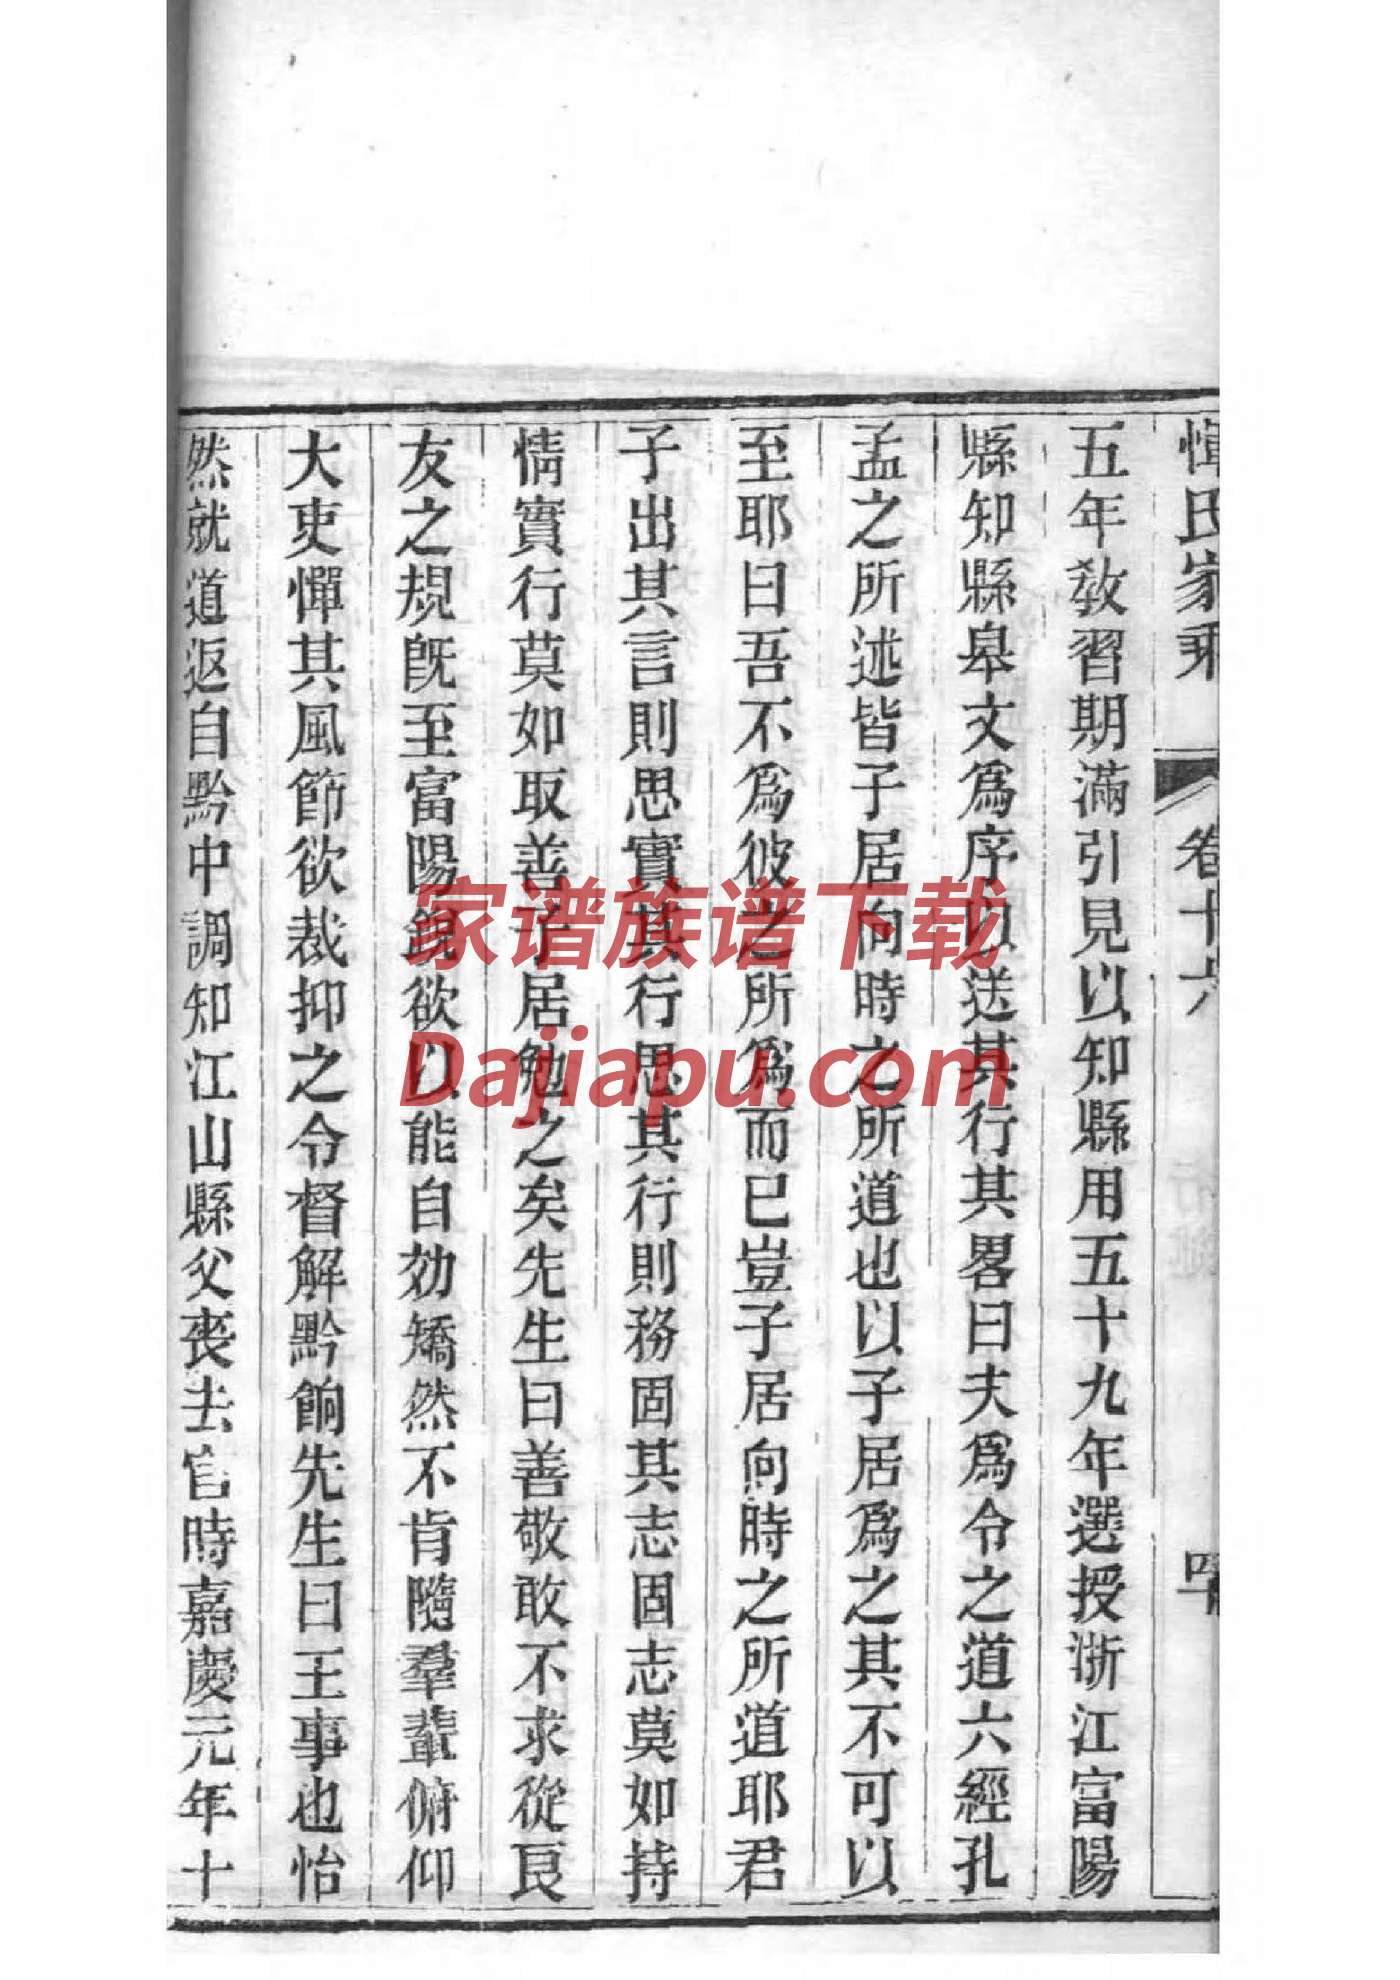 惲氏家乘 卷十六
五年教習期滿引見以知縣用五十九年選授浙江富陽
縣知縣皋文為序以送其行其畧曰夫為令之道六經孔
孟之所述皆子居向時之所道也以子居為之其不可以
至耶曰吾不為彼之所為而已豈子居向時之所道耶君
子出其言則思實其行思其行則務固其志固志莫如持
情實行莫如取善子居勉之矣先生曰善敬敢不求從良
友之規旣至富陽銳欲以能自効矯然不肯隨羣輩俯仰
大吏憚其風節欲裁抑之令督解黔餉先生曰王事也怡
然就道返自黔中調知江山縣父喪去官時嘉慶元年十
家谱族谱下载
Dajiapu.com